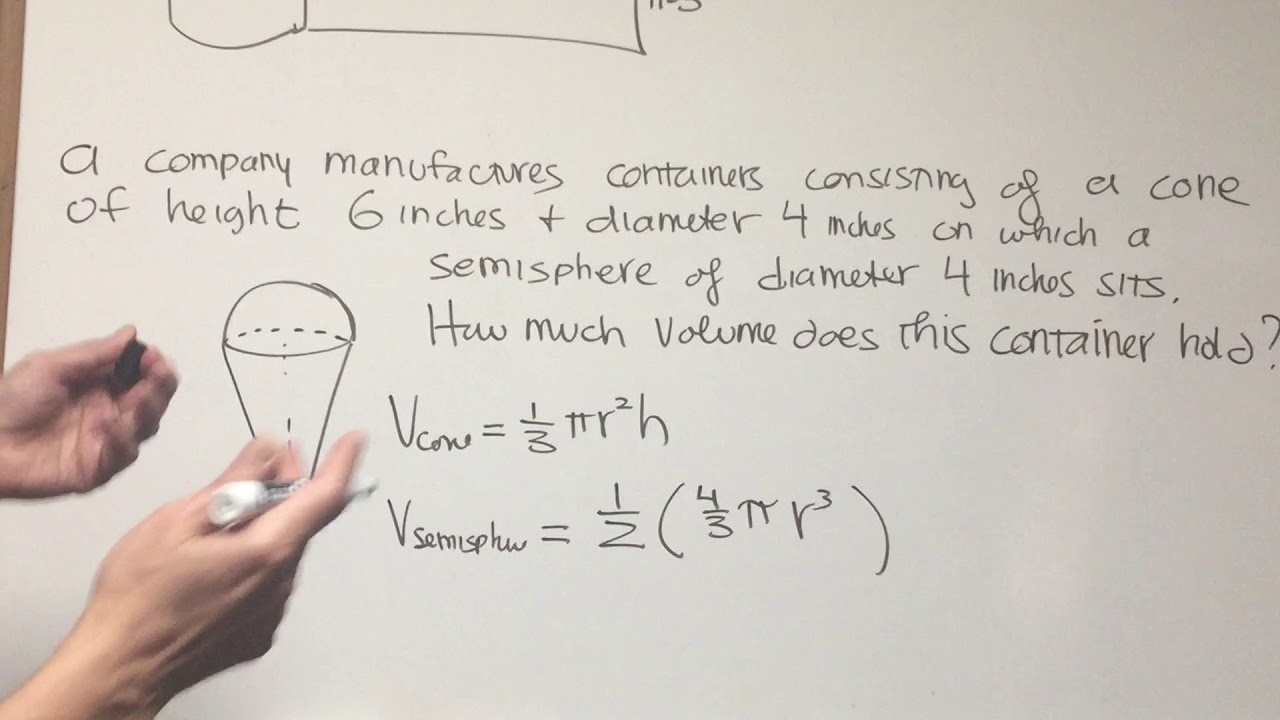 a company manufactures containers consisting of a cone
of height 6 inches + diameter 4 inches on which a
semisphere of diameter 4 inches sits.
How much volume does this container hold?
Vcone = 1/3 πr²h
Vsemisphw = 1/2 (4/3 π r³)